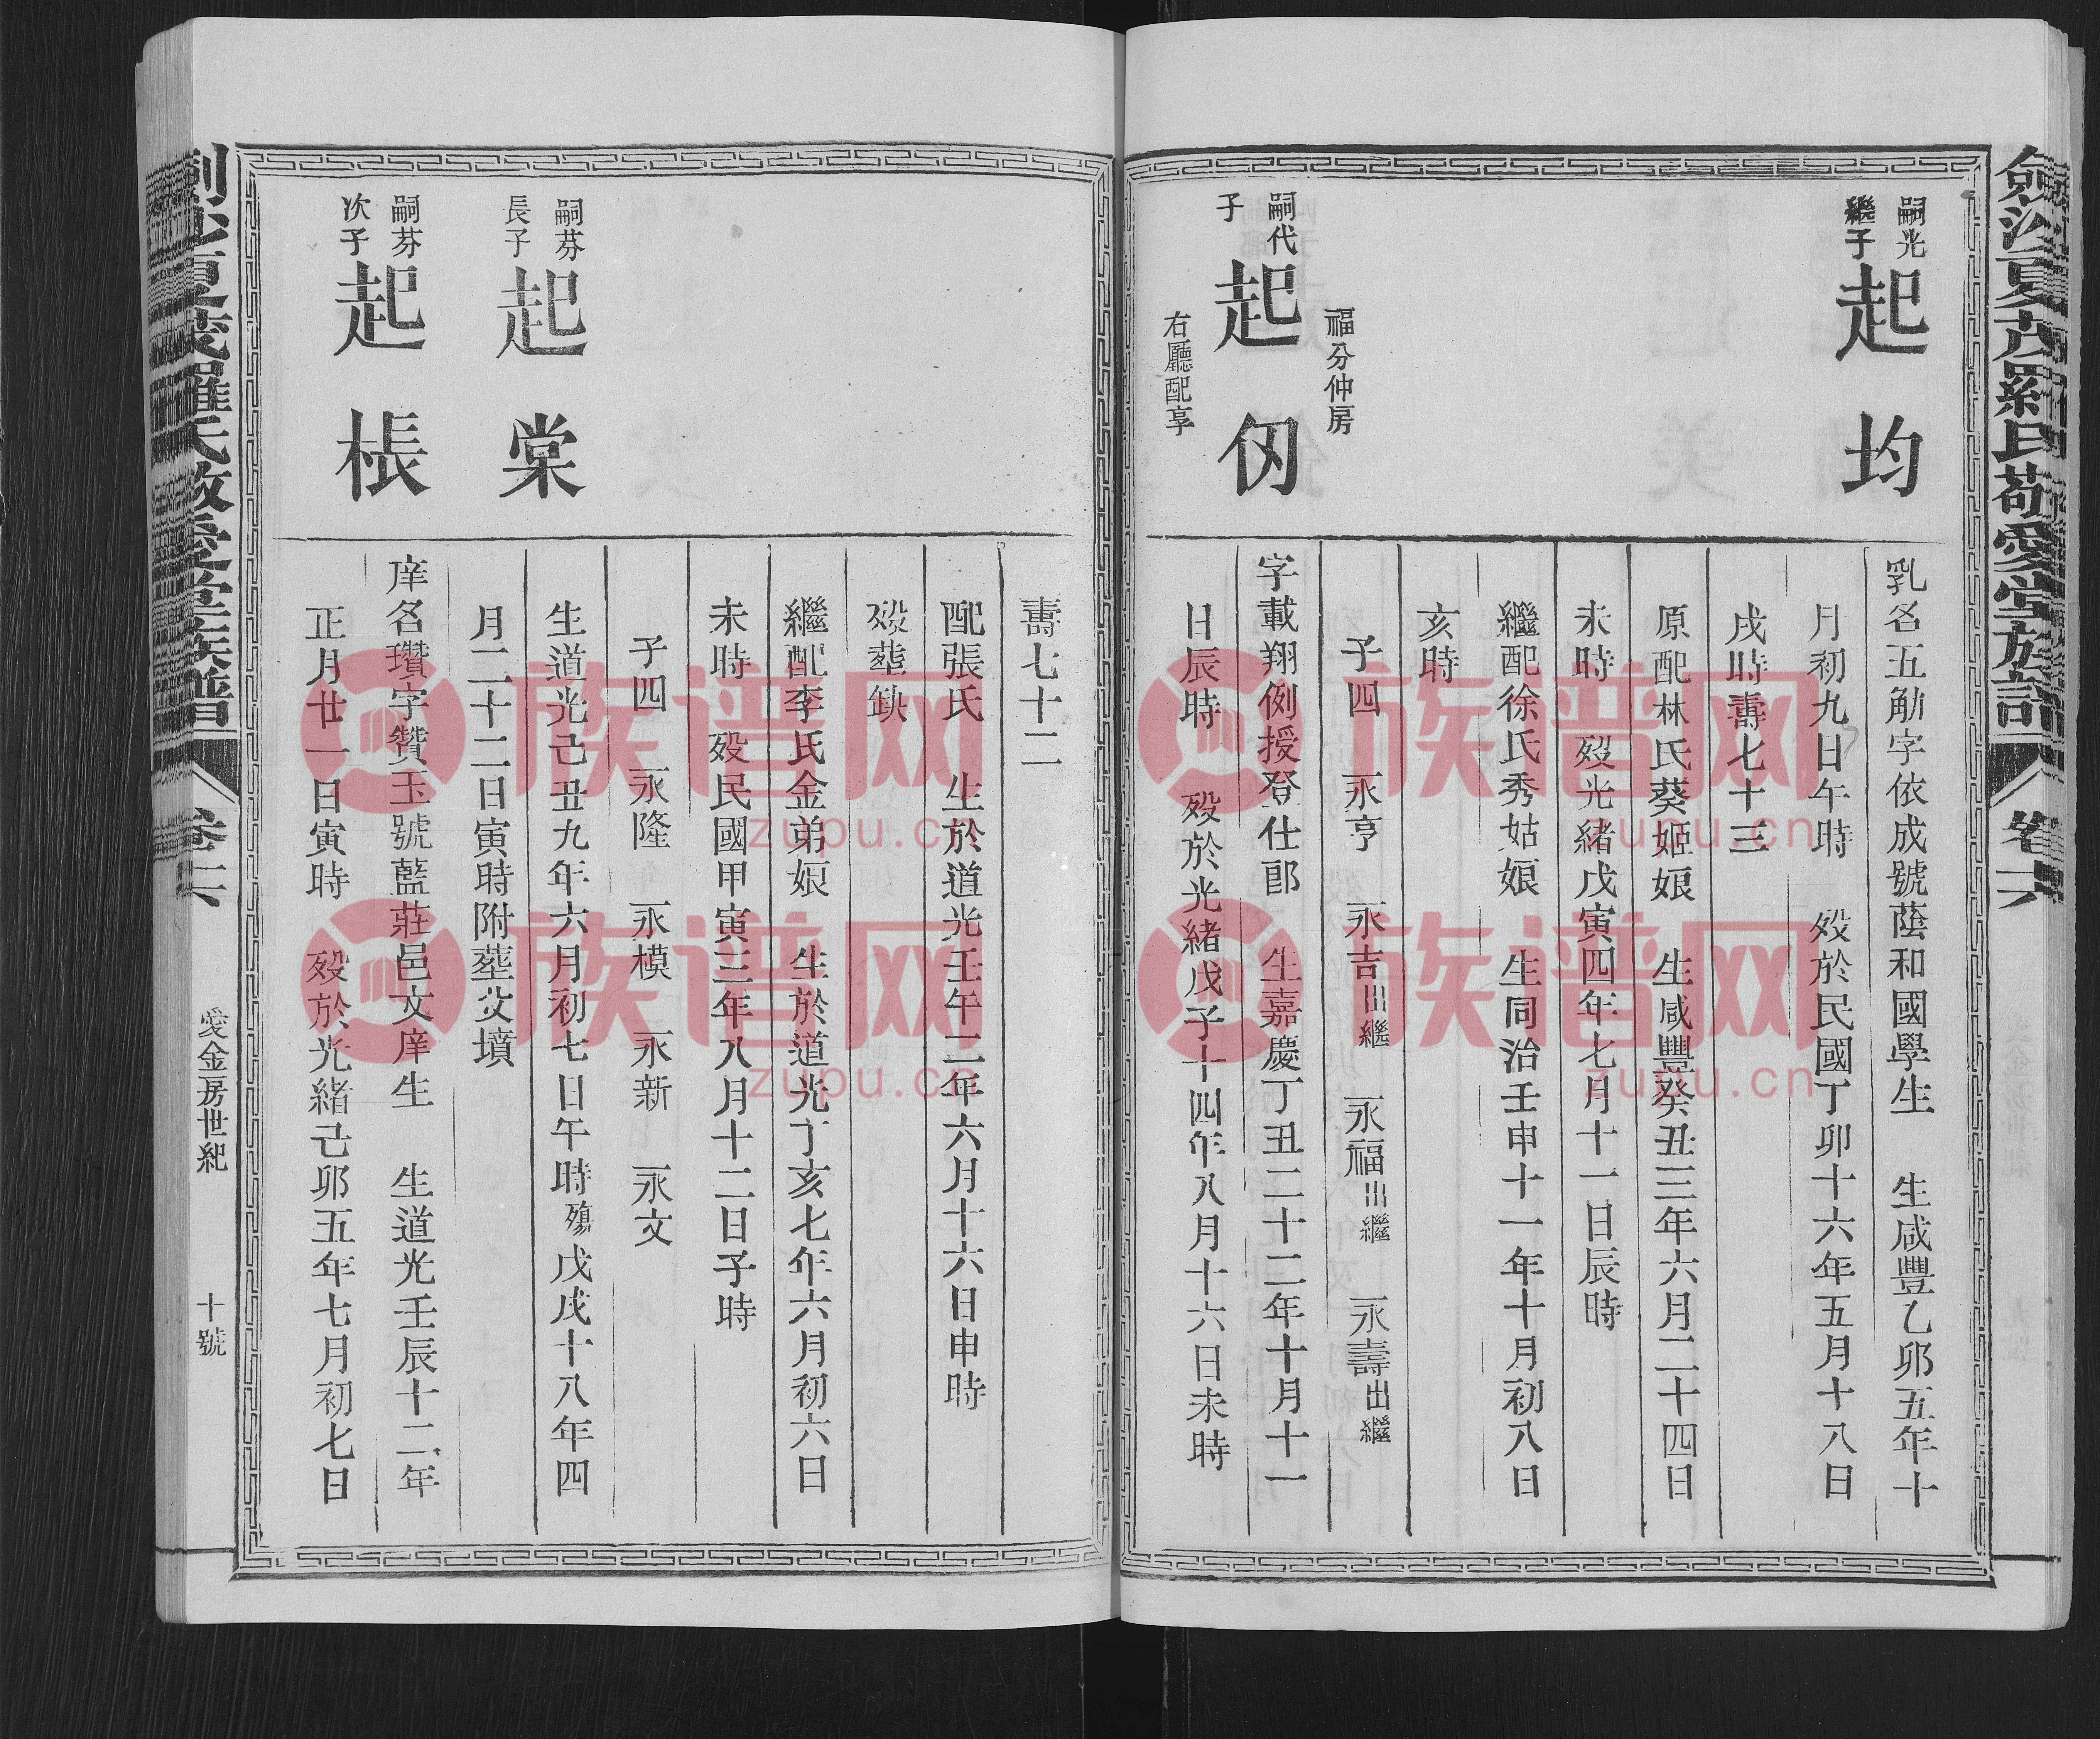 劍沙夏茂羅氏敬愛堂族譜 卷六
嗣光
繼子
起均
乳名五觔字依成號蔭和國學生 生咸豐乙卯五年十
月初九日午時 歿於民國丁卯十六年五月十八日
戌時壽七十三
原配林氏葵姬娘 生咸豐癸丑三年六月二十四日
未時 歿光緒戊寅四年七月十一日辰時
繼配徐氏秀姑娘 生同治壬申十一年十月初八日
亥時
子四 永亨 永吉出繼 永福出繼 永壽出繼
福分仲房
嗣代
子
起仞
右廳配享
字載翔例授登仕郎 生嘉慶丁丑二十二年十月十一
日辰時 歿於光緒戊子十四年八月十六日未時
壽七十二
配張氏 生於道光壬午二年六月十六日申時
歿塟缺
繼配李氏金弟娘 生於道光丁亥七年六月初六日
未時 歿民國甲寅三年八月十二日子時
子四 永隆 永模 永新 永文
嗣芬
長子
起棠
生道光己丑九年六月初七日午時殤戊戌十八年四
月二十二日寅時附塟父墳
嗣芬
次子
起棖
庠名瓚字贊玉號藍莊邑文庠生 生道光壬辰十二年
正月廿一日寅時 歿於光緒己卯五年七月初七日
劍沙夏茂羅氏敬愛堂族譜 卷六 愛金房世紀 十號
族谱网
zupu.cn
族谱网
zupu.cn
族谱网
zupu.cn
族谱网
zupu.cn